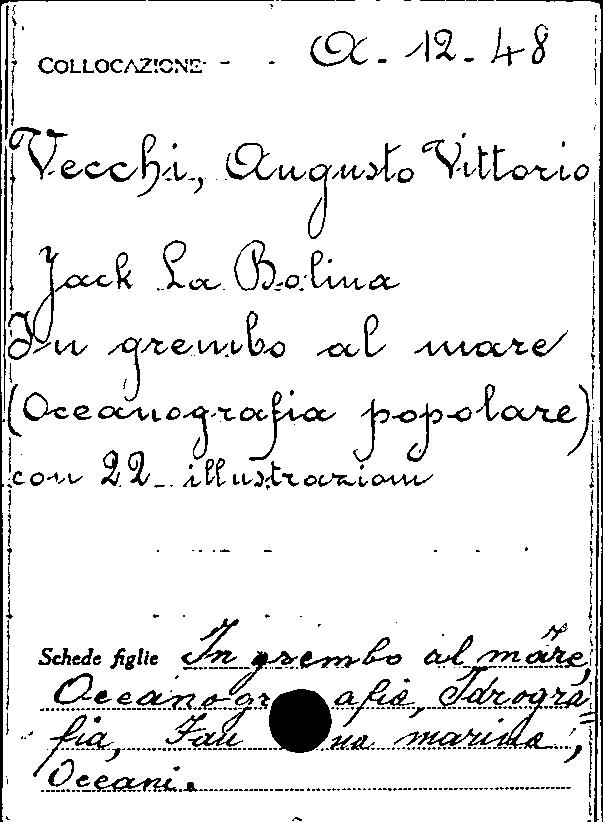 COLLOCAZIONE A. 12. 48
Vecchi, Augusto Vittorio
Jack La Bolina
In grembo al mare
(Oceanografia popolare)
con 22 illustrazioni
Schede figlie In grembo al mare,
Oceanografia, Idrogra=
fia, Fauna marina,
Oceani.